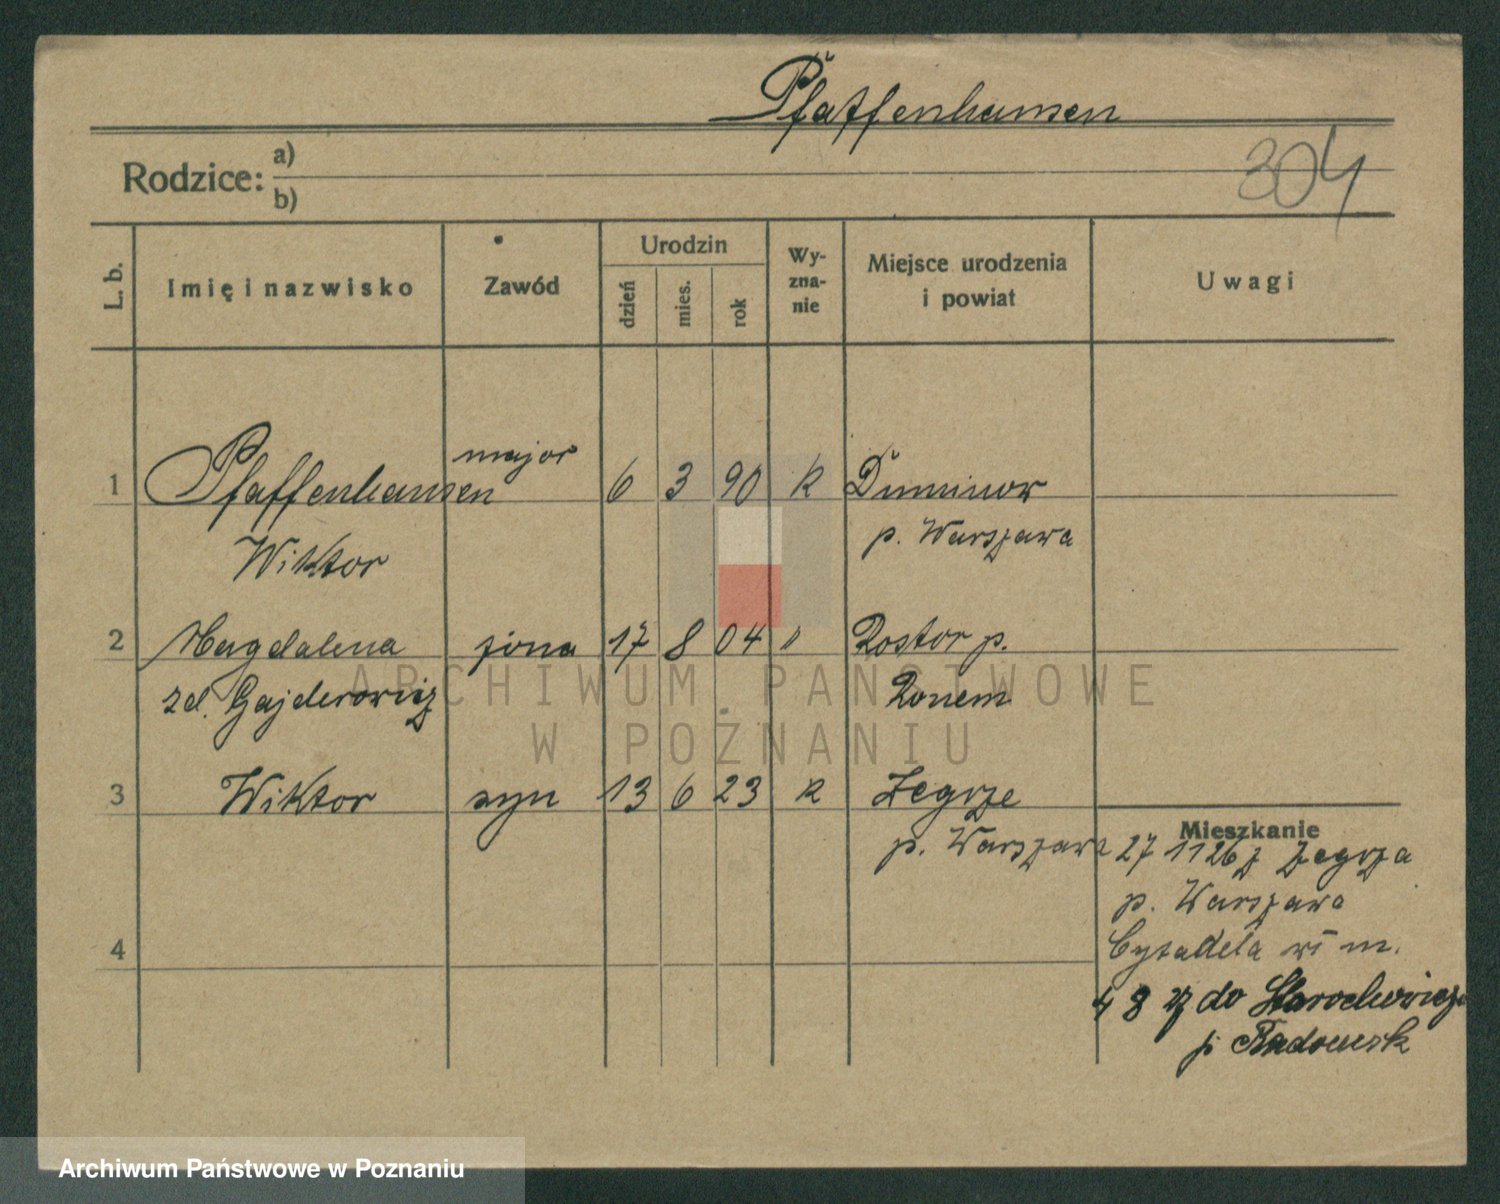 Pfaffenhausen
Rodzice: a)
b)
304
L. b.
Imię i nazwisko
Zawód
Urodzin
dzień
mies.
rok
Wy-
zna-
nie
Miejsce urodzenia
i powiat
Uwagi
major
1 Pfaffenhausen 6 3 90 k
Wiktor p. Warszawa
2 Magdalena żona 17 8 04 " Rostor p.
zd. Gajderowicz
3 Wiktor syn 13 6 23 k Zegrze
p. Warszawa
Mieszkanie
27 11 26 z Zegrza
p. Warszawa
Cytadela m.
4
4 8 27 do
p Radomsk
ARCHIWUM PAŃSTWOWE
W POZNANIU
Archiwum Państwowe w Poznaniu